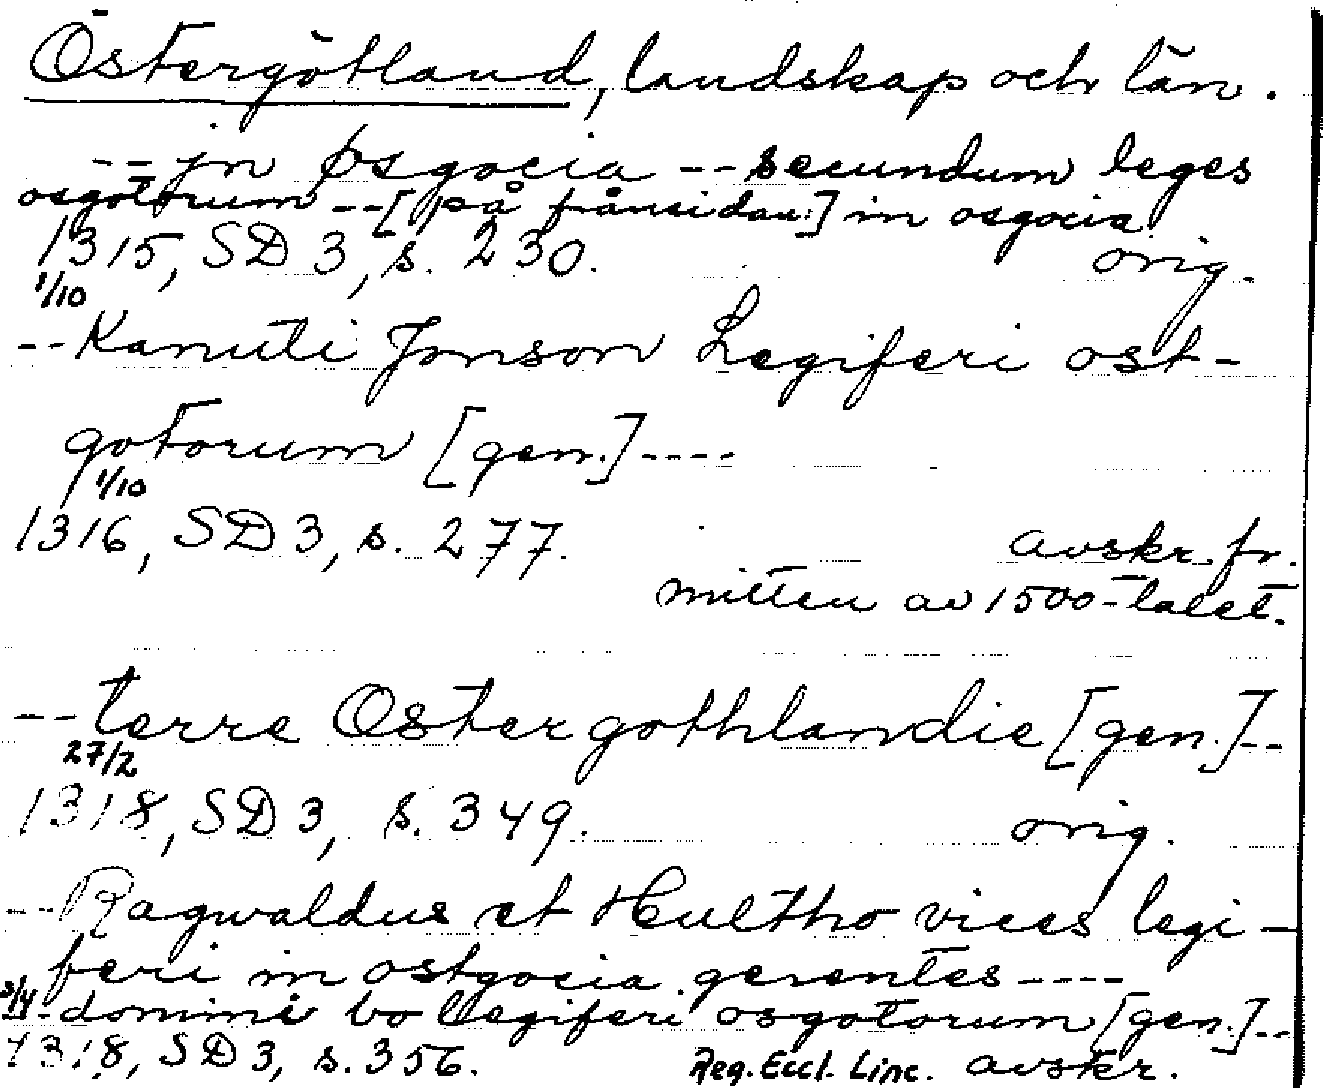 Östergötland, landskap och län.
-- jn osgocia -- secundum leges
osgotorum --[på frånsidan:] in osgocia
1315, SD 3, s. 230. orig.
1/10
-- Kanuti Jonson Legiferi ost-
gotorum [gen.]----
1/10
1316, SD 3, s. 277. avskr. fr.
mitten av 1500-talet.
-- terre Ostergothlandie [gen.]--
27/2
1318, SD 3, s. 349. orig.
-- Ragwaldus et Hultho vices legi-
feri in ostgocia gerentes ----
3/4 -- domini bo legiferi osgotorum [gen.]--
1318, SD 3, s. 356. Reg. Eccl. Linc. avskr.